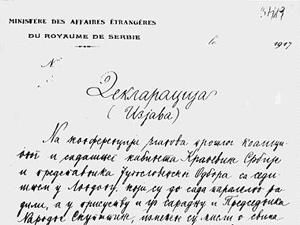 MINISTÈRE DES AFFAIRES ÉTRANGÈRES
DU ROYAUME DE SERBIE
le 1917
№
Декларација
(Изјава)
На конференцији чланова прошлог коалици-
оног и садашњег кабинета Краљевине Србије
и представника Југословенског Одбора са седи-
штем у Лондону, који су до сада паралелно ра-
дили, а у присуству и сарадњу Председника
Народне Скупштине, измењене су мисли о свима